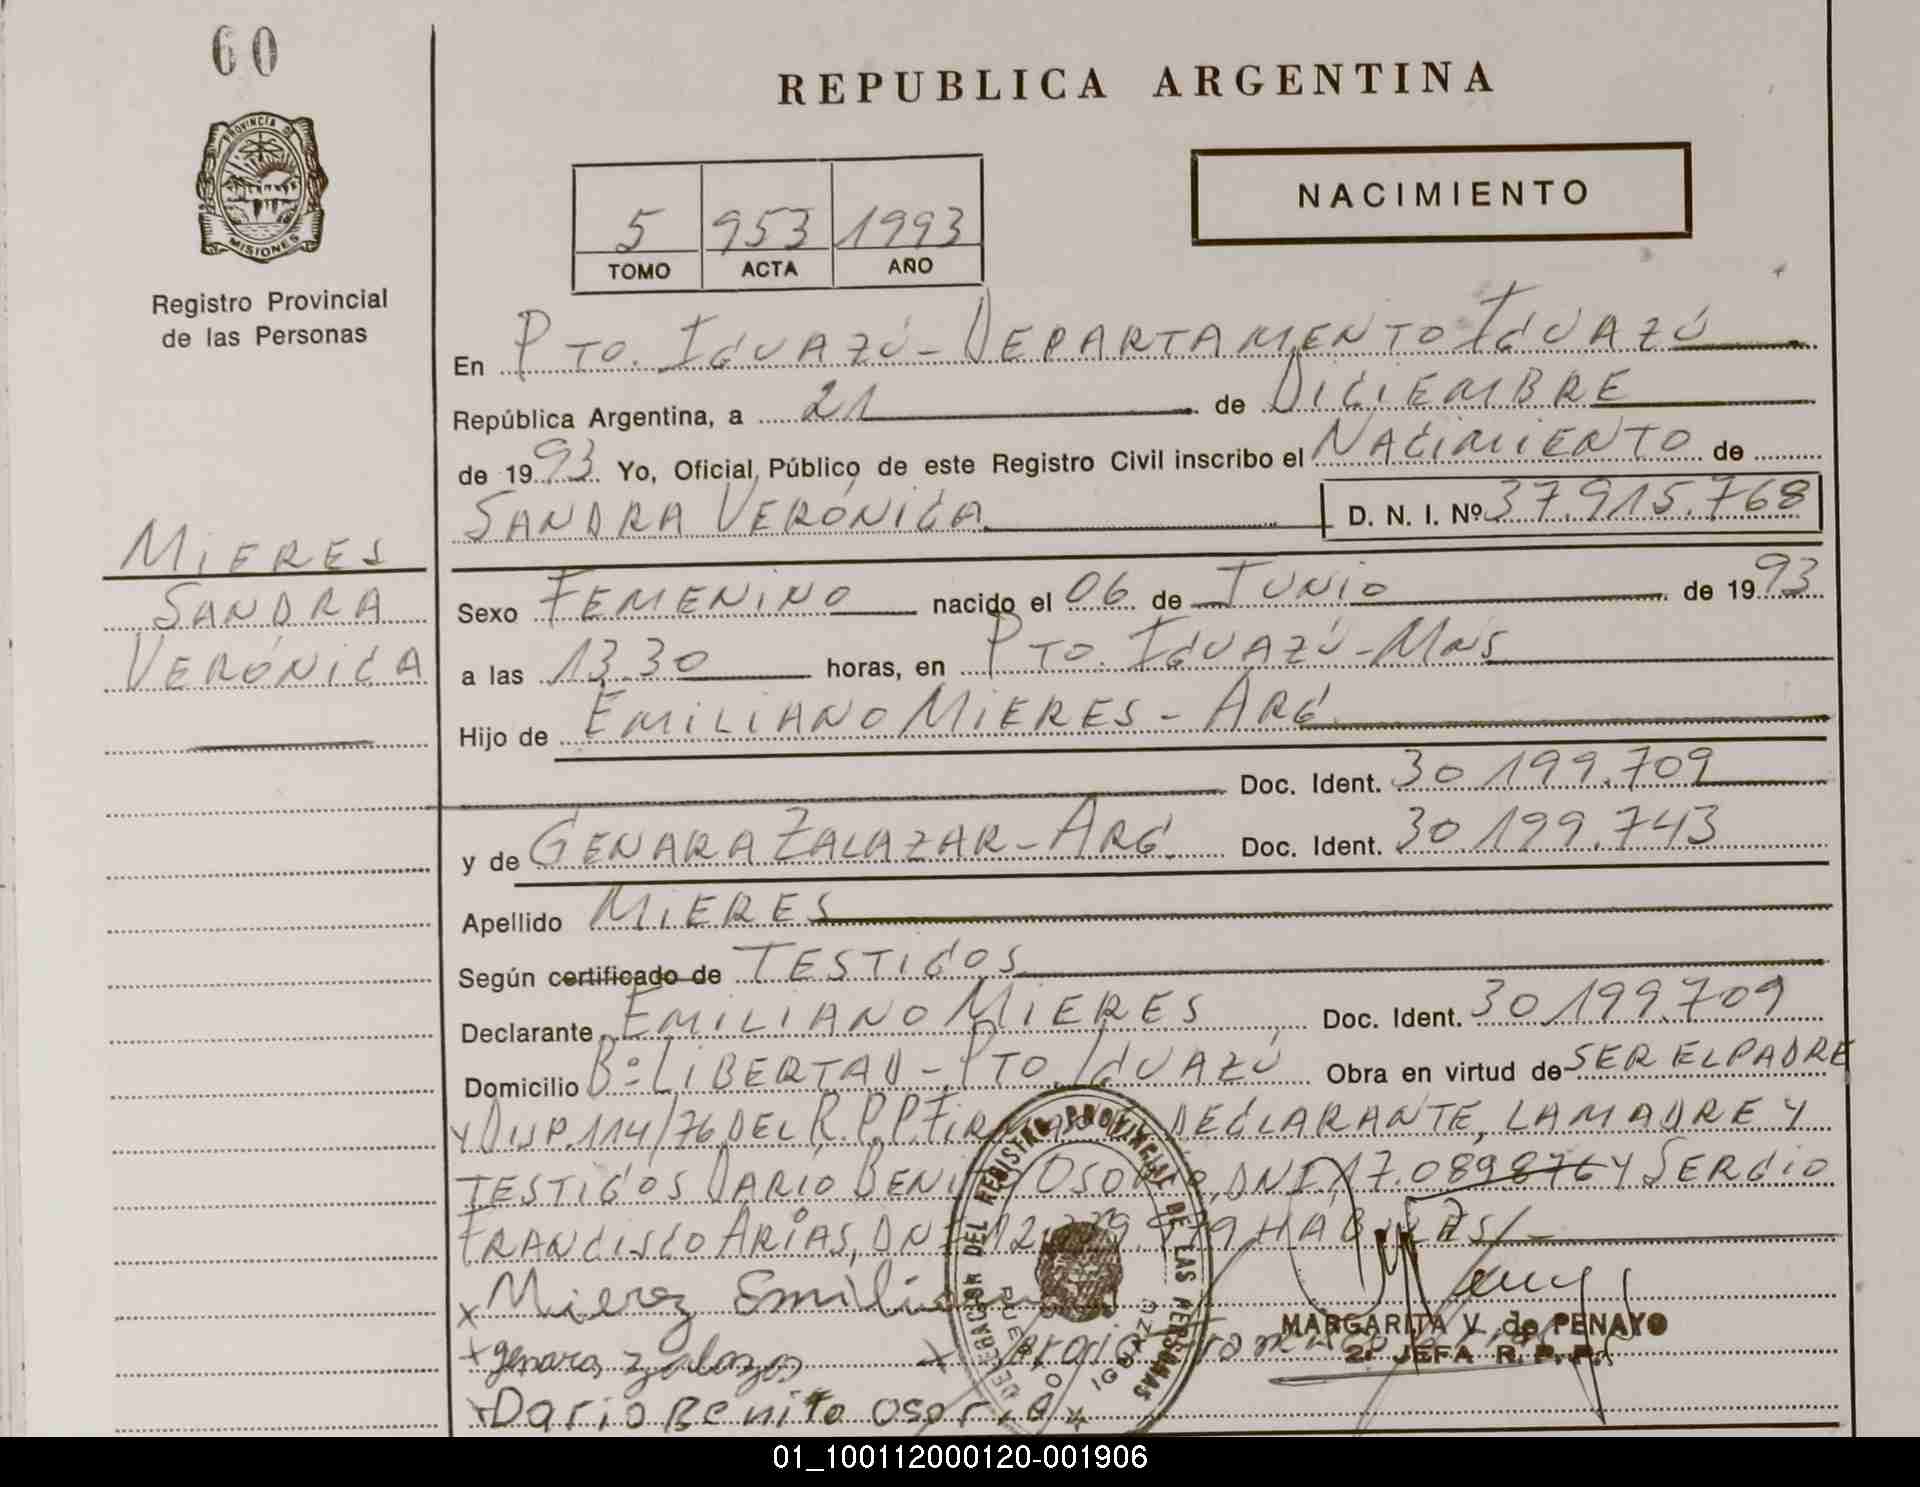 60
REPUBLICA ARGENTINA
PROVINCIA DE
MISIONES
NACIMIENTO
5 953 1993
TOMO ACTA AÑO
Registro Provincial
de las Personas
En PTO. IGUAZÚ - DEPARTAMENTO IGUAZÚ
República Argentina, a 21 de DICIEMBRE
de 1993 Yo, Oficial Público de este Registro Civil inscribo el NACIMIENTO de
SANDRA VERÓNICA D. N. I. Nº 37.915.768
MIERES
SANDRA
VERÓNICA
Sexo FEMENINO nacido el 06 de JUNIO de 1993
a las 13.30 horas, en PTO. IGUAZÚ - Mnes
Hijo de EMILIANO MIERES - ARG.
Doc. Ident. 30.199.709
y de GENARA ZALAZAR - ARG. Doc. Ident. 30.199.743
Apellido MIERES
Según certificado de TESTIGOS
Declarante EMILIANO MIERES Doc. Ident. 30.199.709
Domicilio Bº LIBERTAD - PTO. IGUAZÚ Obra en virtud de SER EL PADRE
Y DISP. 114/76 DEL R.P.P. DECLARANTE, LA MADRE Y
TESTIGOS DARIO BENITO OSORIO, DNI 17.089.876 Y SERGIO
FRANCISCO ARIAS, DNI HÁBILES/-
x Mierez Emiliano
x genara zalazar
x Dario Benito osorio
DELEGACION DEL REGISTRO PROVINCIAL DE LAS PERSONAS
PUERTO IGUAZU
MARGARITA V. de PENAYO
2ª JEFA R. P. P.
01_100112000120-001906